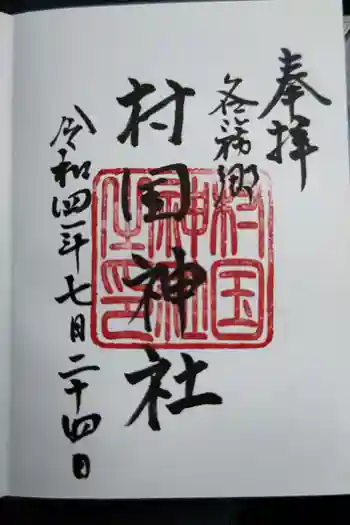 奉拝
各務郷
村国神社
令和四年七月二十四日
村国
神社
之印